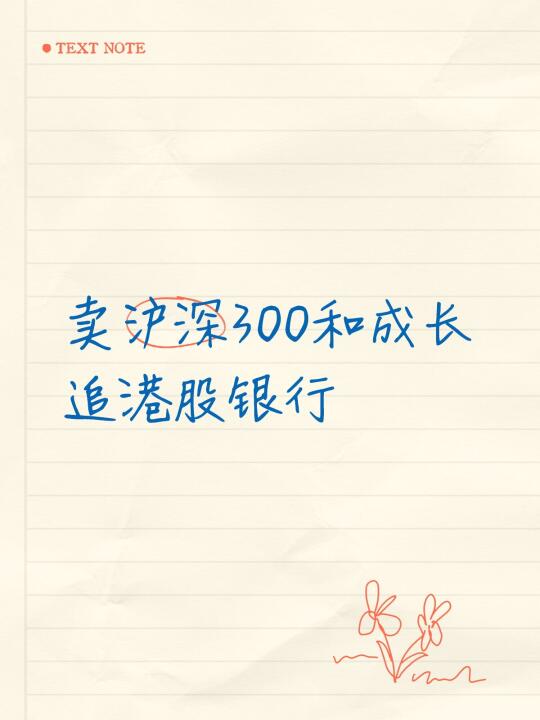 TEXT NOTE
卖沪深300和成长
追港股银行